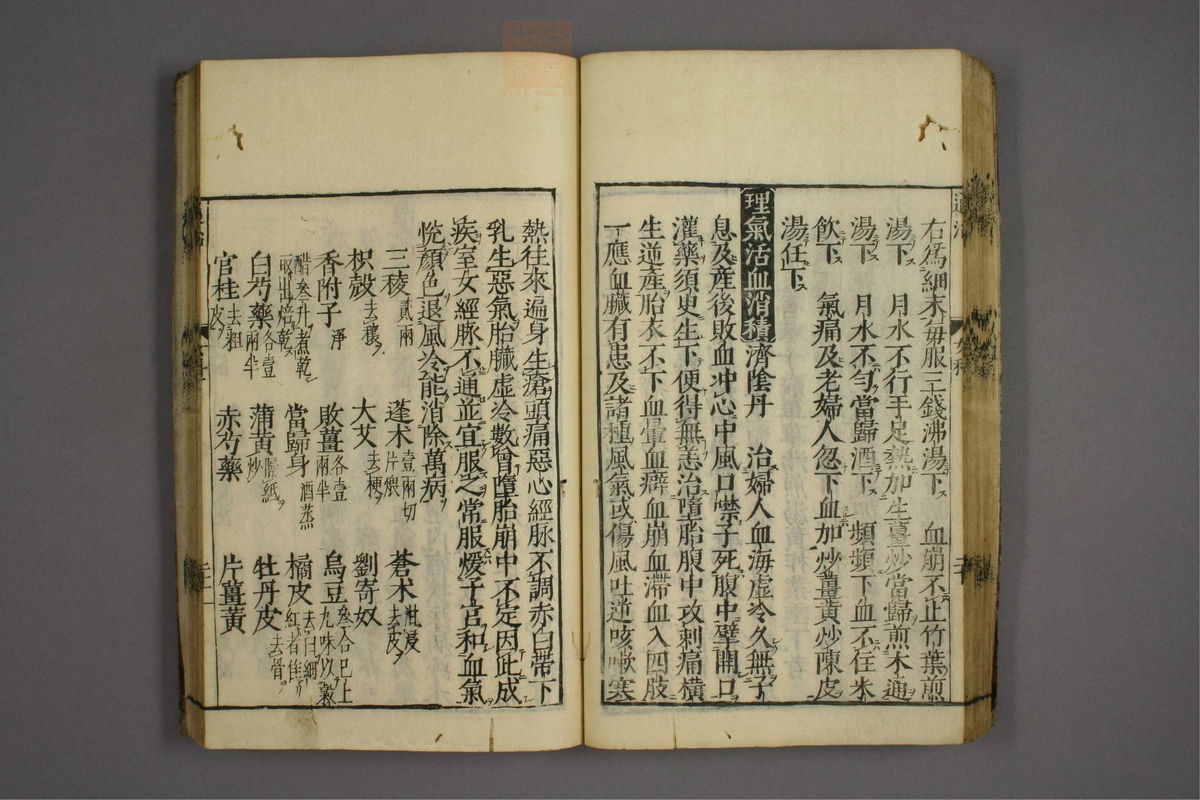 右為細末每服三錢沸湯下　血崩不止竹葉煎
湯下　月水不行手足熱加生薑炒當歸煎木通
湯下　月水不勻當歸酒下　頻頻下血不住米
飲下　氣痛及老婦人忽下血加炒薑黃炒陳皮
湯任下
理氣活血消積濟陰丹　治婦人血海虛冷久無子
息及產後敗血冲心中風口噤子死腹中擘開口
灌藥須臾生下便得無恙治墮胎腹中攻刺痛橫
生逆產胎衣不下血暈血癖血崩血滯血入四肢
一應血臟有患及諸種風氣或傷風吐逆咳嗽寒
熱往來遍身生瘡頭痛惡心經脉不調赤白帶下
乳生惡氣胎臟虛冷數曾墮胎崩中不定因此成
疾室女經脉不通並宜服之常服煖子宮和血氣
悅顏色退風冷能消除萬病
三稜貳兩　蓬木壹兩切片煨　蒼术泔浸去皮
枳殼去穰　大艾去梗　劉寄奴
香附子淨醋叁升煮乾取出焙乾　敗薑各壹兩半　烏豆叁合已上九味以
當歸身酒蒸　橘皮去白細紅者佳
白芍藥各壹兩半　蒲黃隔紙炒　牡丹皮去骨
官桂去粗皮　赤芍藥　片薑黃